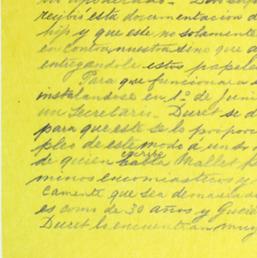 recibió esta documentacion d
hijo y que este no solamente
en contra nuestra sino que a
entregándole estos papele
Para que funcionara a
instalandose en 1º de Juni
un Secretario. Duret se d
para que este se lo propor
pleo de este modo a un s
de quien Mallet
minos encomiasticos y
camente que sea demasiad
es como de 30 años y Gueid
Duret lo encuentran muy